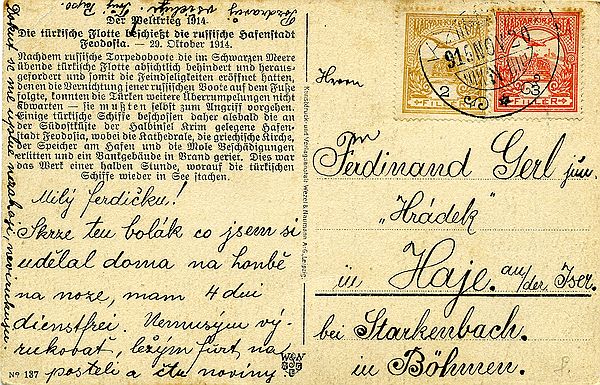 Pozdravuj všechny Tvůj Pepo
Der Weltkrieg 1914.
Die türkische Flotte beschießt die russische Hafenstadt
Feodosia. — 29. Oktober 1914.
Nachdem russische Torpedoboote die im Schwarzen Meere
übende türkische Flotte absichtlich behindert und heraus-
gefordert und somit die Feindseligkeiten eröffnet hatten,
denen die Vernichtung jener russischen Boote auf dem Fuße
folgte, konnten die Türken weitere Überrumpelungen nicht
abwarten — sie mußten selbst zum Angriff vorgehen.
Einige türkische Schiffe beschossen daher alsbald die an
der Südostküste der Halbinsel Krim gelegene Hafen-
stadt Feodosia, wobei die Kathedrale, die griechische Kirche,
der Speicher am Hafen und die Mole Beschädigungen
erlitten und ein Bankgebäude in Brand geriet. Dies war
das Werk einer halben Stunde, worauf die türkischen
Schiffe wieder in See stachen.
Milý ferdičku!
Skrze ten bolák co jsem si
udělal doma na honbě
na noze, mam 4 dni
dienstfrei. Nemusým vý-
rukovať, ležým furt, na
posteli a čtu noviny
Pokud se me
nezahojí, nevyrukuju.
No 137
W&N
Kunstdruck- und Verlagsanstalt Wezel & Naumann A.-G., Leipzig
MAGYAR KIR. POSTA
2 FILLER
MAGYAR KIR. POSTA
FILLER
915 NOV 20
Herrn
Pn
Ferdinand Gerl jun.
„Hrádek"
in Haje. an/der Iser.
bei Starkenbach.
in Böhmen.